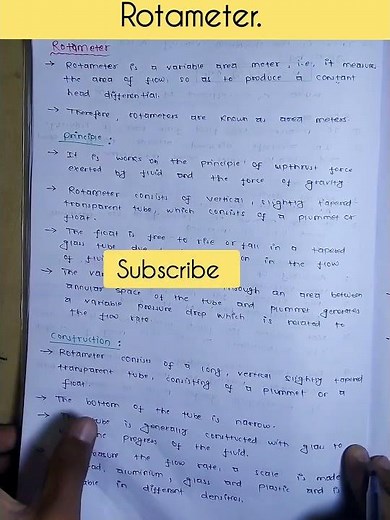 Rotameter.
Rotameter
→ Rotameter is a variable area meter, i.e., it measure
the area of flow, so as to produce a constant
head differential.
→ Therefore, rotameters are known as area meters.
Principle :
→ It is works on the principle of upthrust force
exerted by fluid and the force of gravity
→ Rotameter consists of vertical, slightly tapered
transparent tube, which consists of a plummet or
float.
→ The float is free to rise or fall in a tapered
glass tube due
of in the flow
Subscribe
→ The through an area between
annular space of the tube and plummet generates
a variable pressure drop which is related to
the flow rate.
Construction :
→ Rotameter consists of a long, vertical slightly tapered
transparent tube, consisting of a plummet or a
float.
→ The bottom of the tube is narrow.
→ tube is generally constructed with glass to
the progress of the fluid.
the flow rate, a scale is made
aluminium, glass and plastic and is
in different densities.